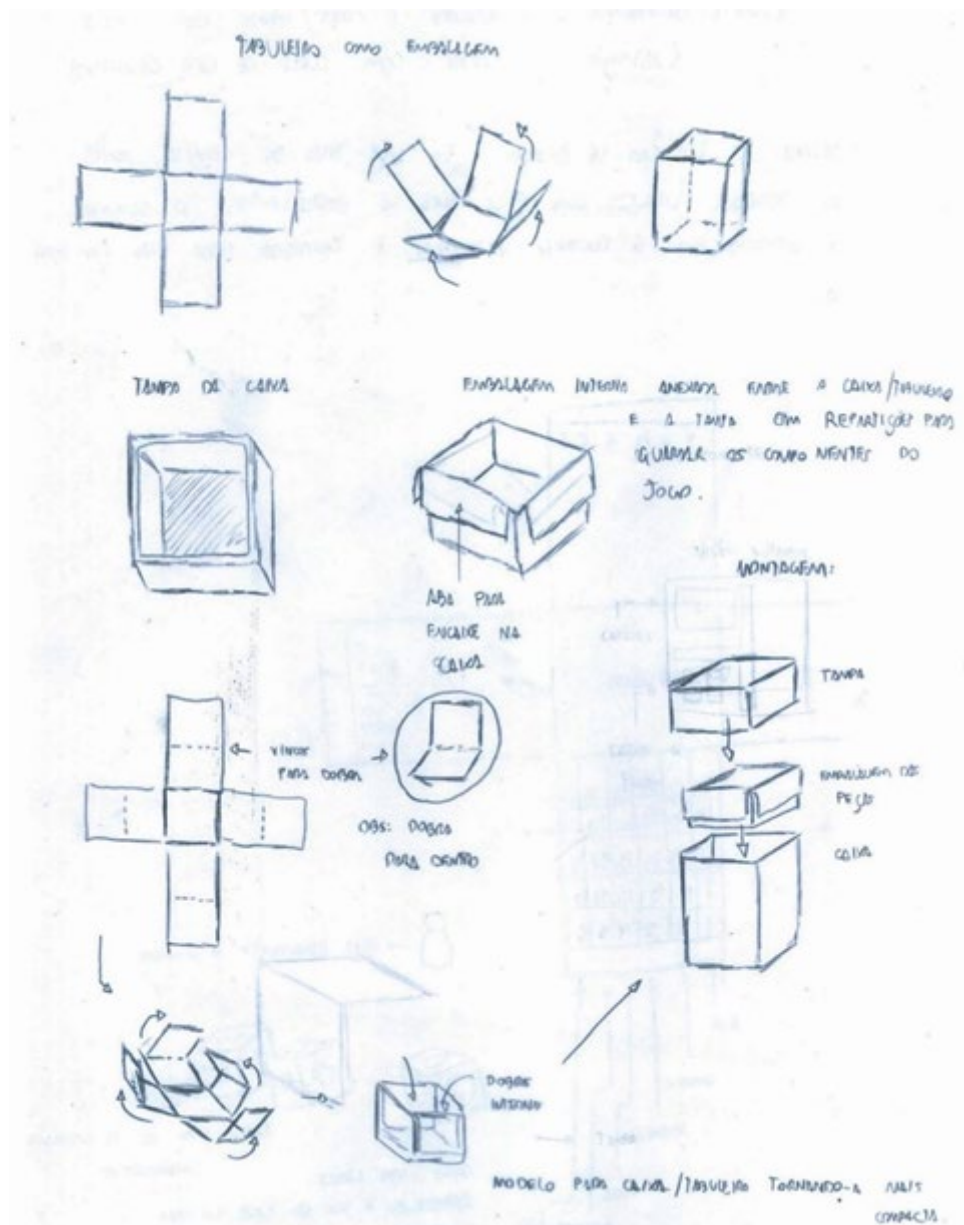 TABULEIRO COMO EMBALAGEM
TAMPA DA CAIXA
EMBALAGEM INTERNA ANEXADA ENTRE A CAIXA/TABULEIRO
E A TAMPA COM REPARTIÇÃO PARA
GUARDAR OS COMPONENTES DO
JOGO.
ABA PARA
ENCAIXE NA
CAIXA
MONTAGEM:
TAMPA
EMBALAGEM DE
PEÇAS
CAIXA
VINCO
PARA DOBRA
OBS: DOBRA
PARA DENTRO
DOBRA
INTERNA
MODELO PARA CAIXA/TABULEIRO TORNANDO-A MAIS
COMPACTA.